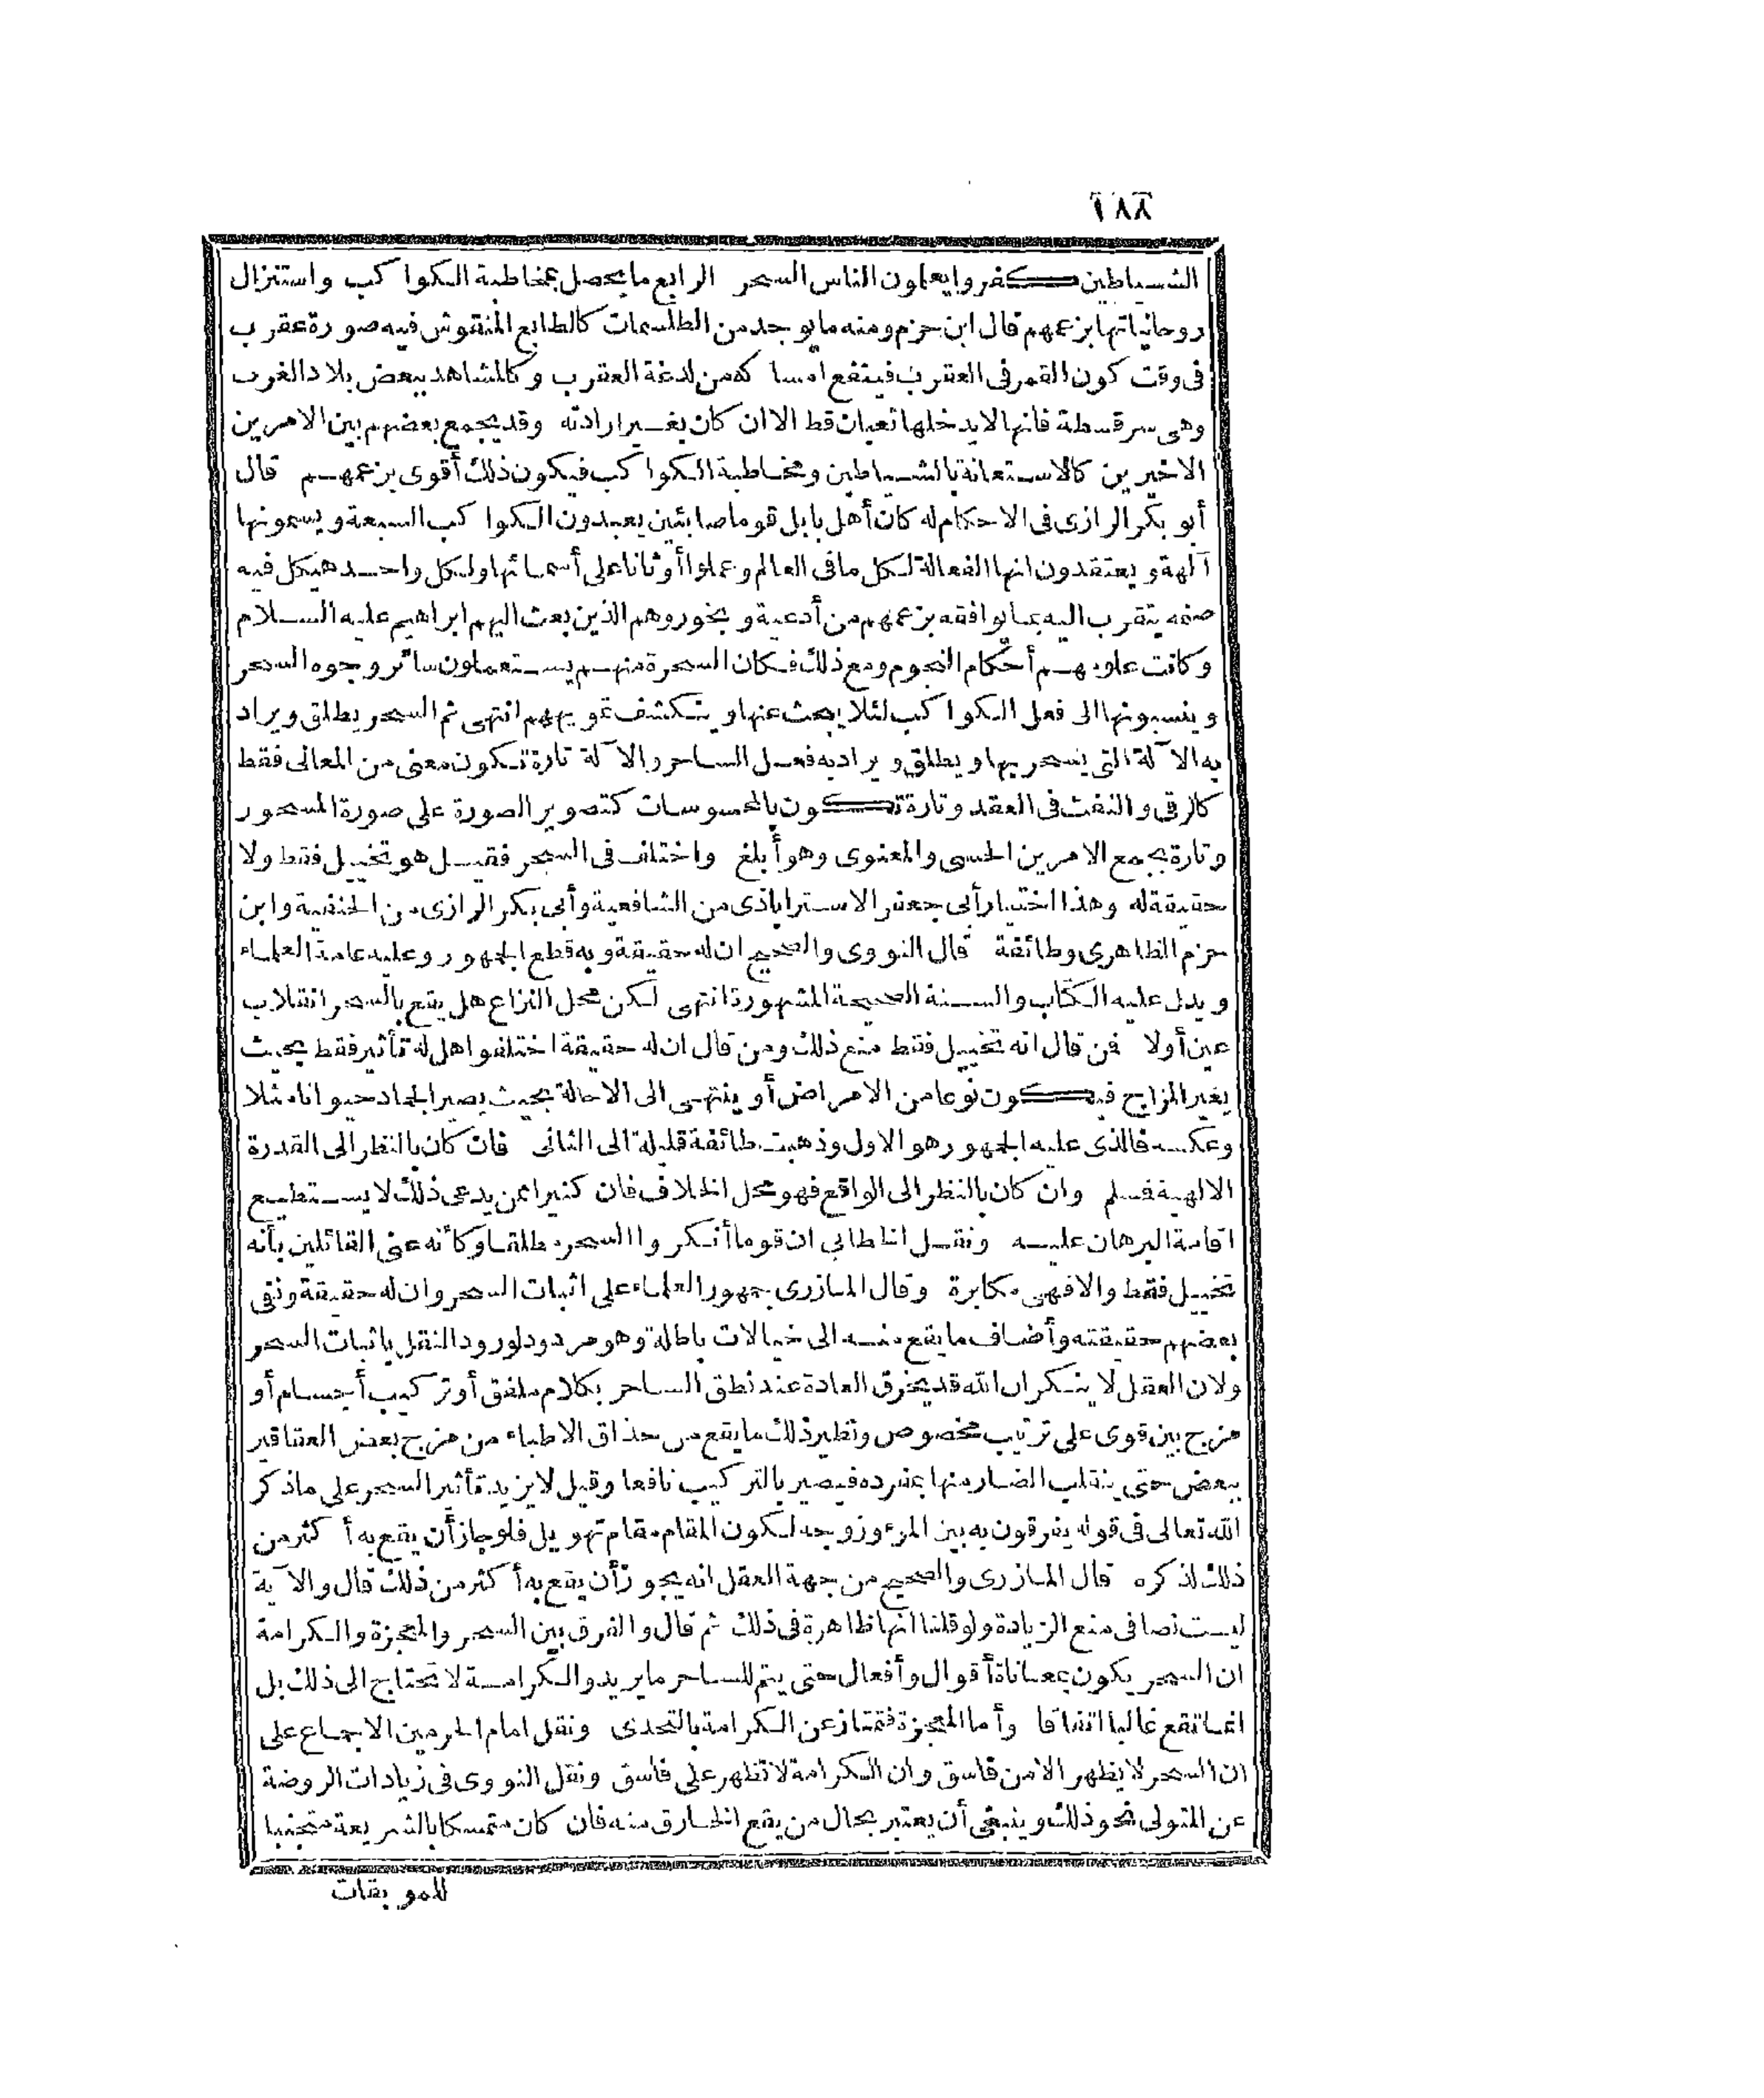 ١٨٨
الشياطين كفروا يعلمون الناس السحر الرابع ما يحصل بمخاطبة الكواكب واستنزال
روحانياتها بزعمهم قال ابن حزم ومنه ما يوجد من الطلسمات كالطابع المنقوش فيه صورة عقرب
فى وقت كون القمر فى العقرب فينفع امساكه من لدغة العقرب وكالمشاهد ببعض بلاد الغرب
وهى سرقسطة فانها لا يدخلها ثعبان قط الا ان كان بغير ارادته وقد يجمع بعضهم بين الامرين
الاخيرين كالاستعانة بالشياطين ومخاطبة الكواكب فيكون ذلك أقوى بزعمهم قال
أبو بكر الرازى فى الاحكام له كان أهل بابل قوما صابئين يعبدون الكواكب السبعة ويسمونها
آلهة ويعتقدون انها الفعالة لكل ما فى العالم وعملوا أوثانا على أسمائها ولكل واحد هيكل فيه
صنمه يتقرب اليه بما يوافقه بزعمهم من أدعية وبخور وهم الذين بعث اليهم ابراهيم عليه السلام
وكانت علومهم أحكام النجوم ومع ذلك فكان السحرة منهم يستعملون سائر وجوه السحر
وينسبونها الى فعل الكواكب لئلا يبحث عنها وينكشف تمويههم انتهى ثم السحر يطلق ويراد
به الآلة التى يسحر بها ويطلق ويراد به فعل الساحر والآلة تارة تكون معنى من المعانى فقط
كالرقى والنفث فى العقد وتارة تكون بالمحسوسات كتصوير الصورة على صورة المسحور
وتارة بجمع الامرين الحسى والمعنوى وهو أبلغ واختلف فى السحر فقيل هو تخييل فقط ولا
حقيقة له وهذا اختيار أبى جعفر الاستراباذى من الشافعية وأبى بكر الرازى من الحنفية وابن
حزم الظاهرى وطائفة قال النووى والصحيح ان له حقيقة وبه قطع الجمهور وعليه عامة العلماء
ويدل عليه الكتاب والسنة الصحيحة المشهورة انتهى لكن محل النزاع هل يقع بالسحر انقلاب
عين أولا فمن قال انه تخييل فقط منع ذلك ومن قال ان له حقيقة اختلفوا هل له تأثير فقط بحيث
يغير المزاج فيكون نوعا من الامراض أو ينتهى الى الاحالة بحيث يصير الجماد حيوانا مثلا
وعكسه فالذى عليه الجمهور هو الاول وذهبت طائفة قليلة الى الثانى فان كان بالنظر الى القدرة
الالهية فسلم وان كان بالنظر الى الواقع فهو محل الخلاف فان كثيرا ممن يدعى ذلك لا يستطيع
اقامة البرهان عليه ونقل الخطابى ان قوما أنكروا السحر مطلقا وكأنه عنى القائلين بأنه
تخييل فقط والا فهى مكابرة وقال المازرى جمهور العلماء على اثبات السحر وان له حقيقة ونفى
بعضهم حقيقته وأضاف ما يقع منه الى خيالات باطلة وهو مردود لورود النقل باثبات السحر
ولان العقل لا ينكر ان الله قد يخرق العادة عند نطق الساحر بكلام ملفق أو تركيب أجسام أو
مزج بين قوى على ترتيب مخصوص ونظير ذلك ما يقع من حذاق الاطباء من مزج بعض العقاقير
ببعض حتى ينقلب الضار منها بمفرده فيصير بالتركيب نافعا وقيل لا يزيد تأثير السحر على ما ذكر
الله تعالى فى قوله يفرقون به بين المرء وزوجه لكون المقام مقام تهويل فلو جاز أن يقع به أكثر من
ذلك لذكره قال المازرى والصحيح من جهة العقل انه يجوز أن يقع به أكثر من ذلك قال والآية
ليست نصا فى منع الزيادة ولو قلنا انها ظاهرة فى ذلك ثم قال والفرق بين السحر والمعجزة والكرامة
ان السحر يكون بمعاناة أقوال وأفعال حتى يتم للساحر ما يريد والكرامة لا تحتاج الى ذلك بل
انما تقع غالبا اتفاقا وأما المعجزة فتمتاز عن الكرامة بالتحدى ونقل امام الحرمين الاجماع على
ان السحر لا يظهر الا من فاسق وان الكرامة لا تظهر على فاسق ونقل النووى فى زيادات الروضة
عن المتولى نحو ذلك وينبغى أن يعتبر بحال من يقع الخارق منه فان كان متمسكا بالشريعة متجنبا
للموبقات